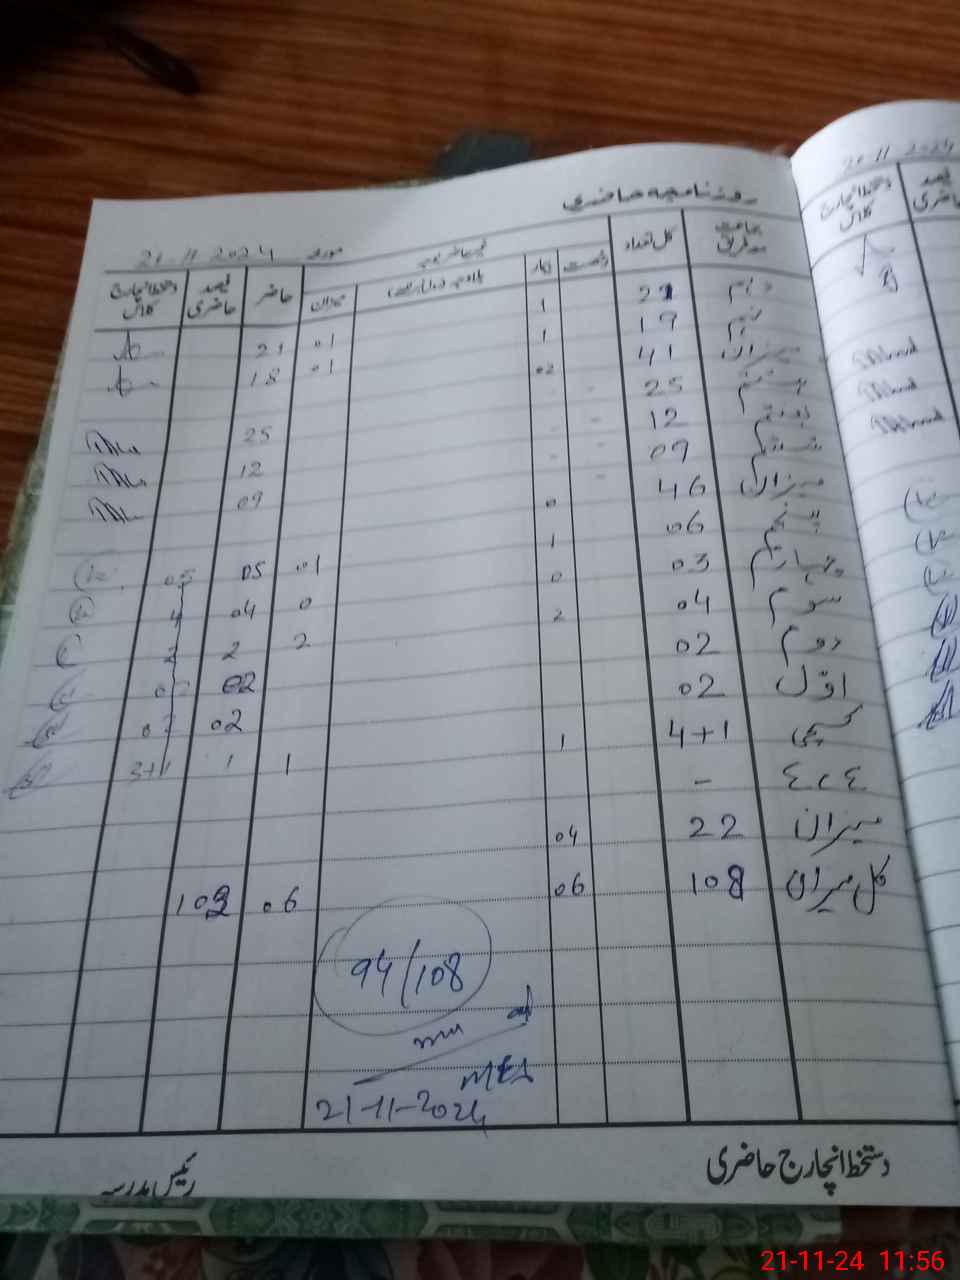 روزنامچہ حاضری
مورخہ 21-11-2024
جماعت کل تعداد رخصت بیمار میزان حاضر فیصد حاضری دستخط انچارج کلاس
دہم 22 1 01 21
نہم 19 1 01 18
میزان 41 02
ہشتم 25 - 25
ہفتم 12 - - 12
ششم 09 - - 09
میزان 46 - 0
پنجم 06 1 01 05 05
چہارم 03 0 0 04 4
سوم 04 2 2 2 2
دوم 02 02
اول 02 02
کچی 4+1 1 1 1 3+1
ع ، ع -
میزان 22 04
کل میزان 108 06 06 102
94/108
MEA
21-11-2024
دستخط انچارج حاضری
رئیس مدرسہ
20-11-2024
دستخط انچارج کلاس
فیصد حاضری
21-11-24 11:56